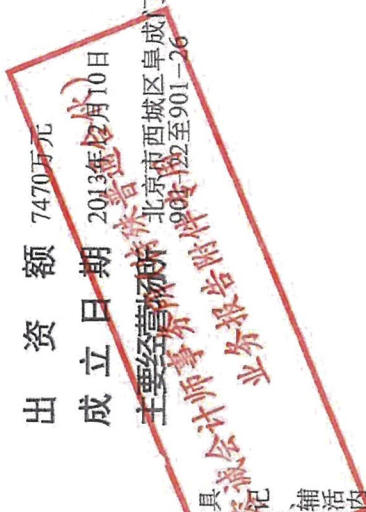 出资额 7470万元
成立日期 2013年12月10日
主要经营场所 北京市西城区阜成门
901-22至901-26
诚会计师事务所(特殊普通合伙)
业务报告附件专用
具
记
辅
活
内